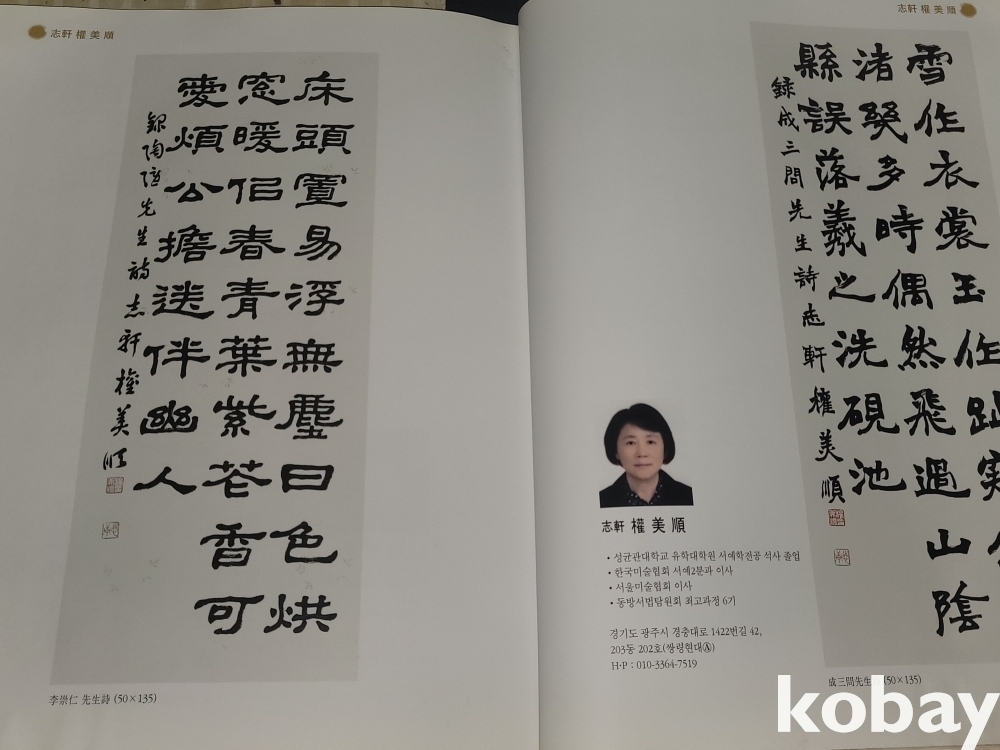 志軒 權美順
床頭置易浮無塵日色烘
窓暖佀春青葉紫花香可
愛煩公擔送伴幽人
錄陶隱先生詩志軒權美順
李崇仁 先生詩 (50×135)
志軒 權美順
雪作衣裳玉作趾
渚幾多時偶然飛過山陰
縣誤落羲之洗硯池
錄成三問先生詩志軒權美順
志軒 權美順
• 성균관대학교 유학대학원 서예학전공 석사 졸업
• 한국미술협회 서예2분과 이사
• 서울미술협회 이사
• 동방서법탐원회 최고과정 6기
경기도 광주시 경충대로 1422번길 42,
203동 202호(쌍령현대Ⓐ)
H·P : 010-3364-7519
成三問先生 (50×135)
kobay